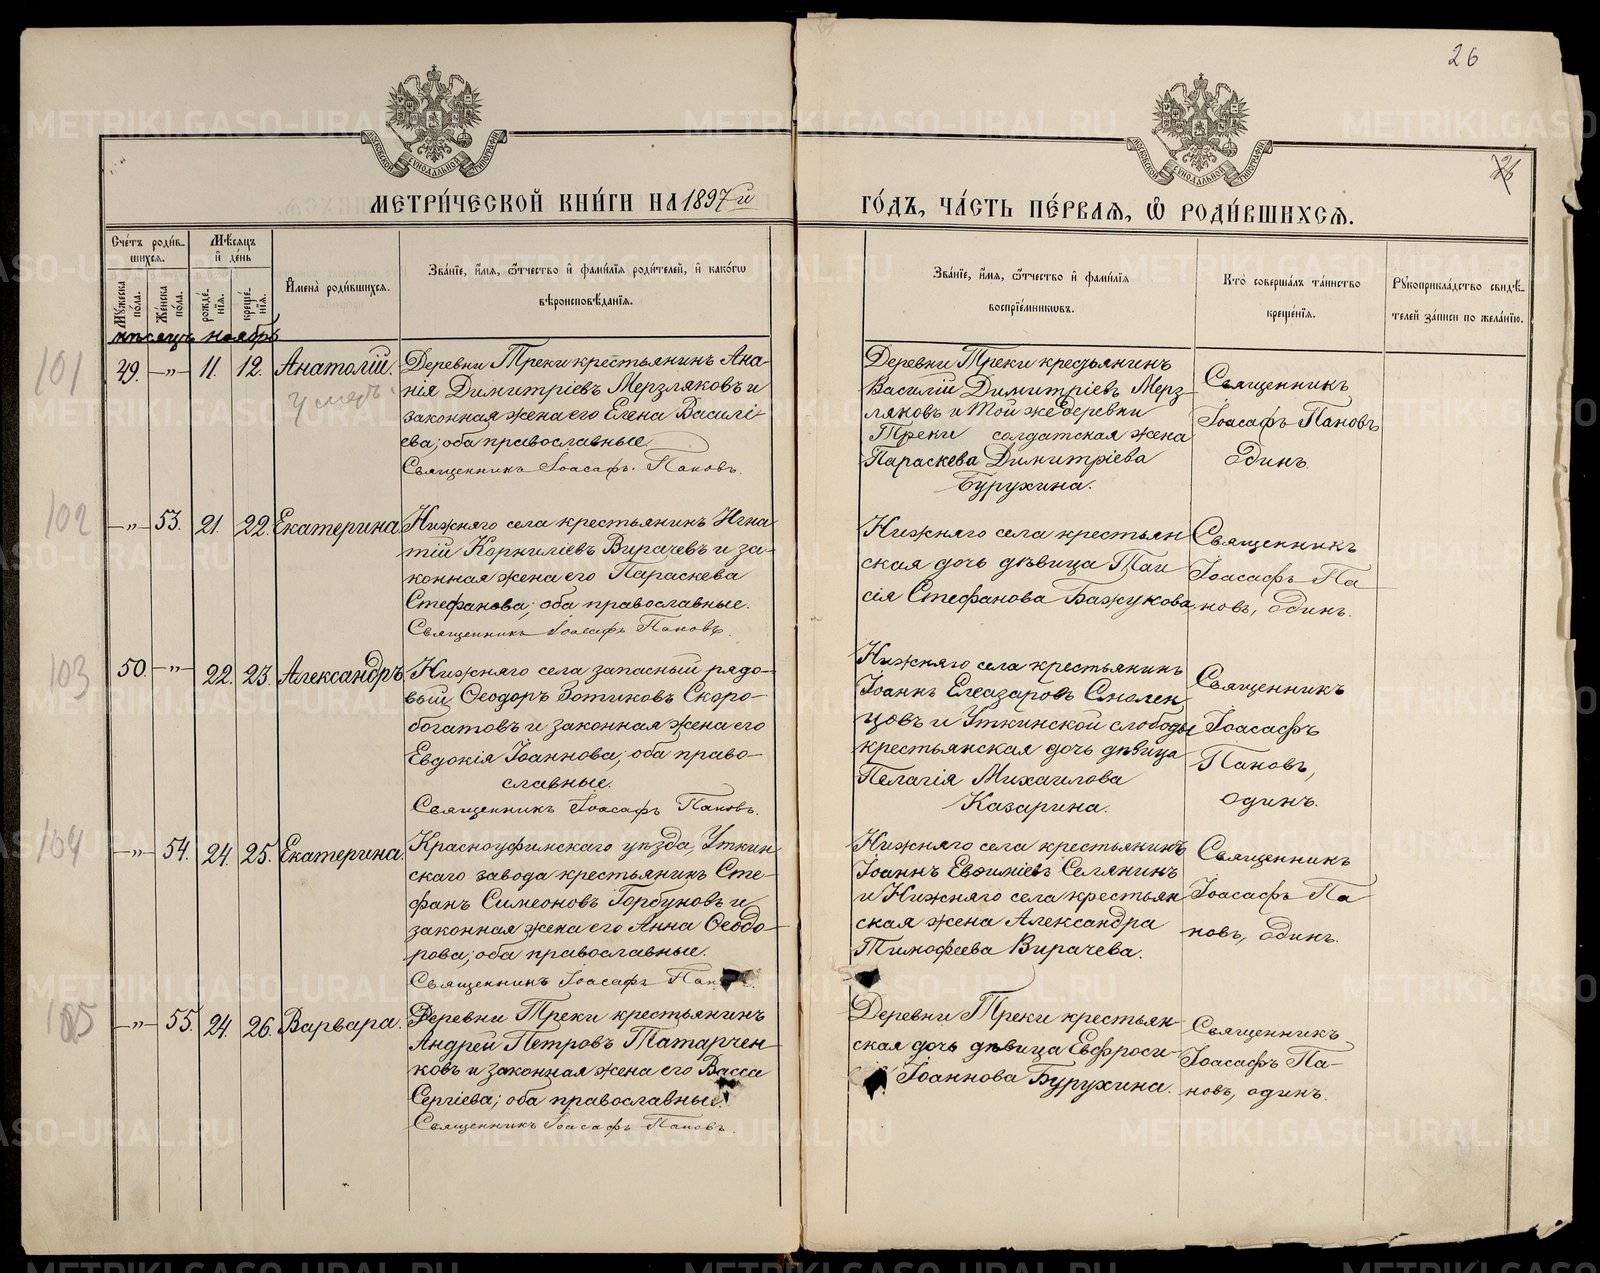 26
26
МЕТРИ́ЧЕСКОЙ КНИ́ГИ НА 1897й
ГО́ДЪ, ЧА́СТЬ ПЕ́РВАЯ, Ѽ РОДИ́ВШИХСЯ.
Сче́тъ роди́вшихся.
Му́жеска по́ла.
Же́нска по́ла.
Мѣ́сяцъ и҆ де́нь
рожде́нїя.
креще́нїя.
И҆мена̀ роди́вшихся.
Зва́нїе, и҆́мя, ѻ҆́тчество и҆ фами́лїя роди́телей, и҆ како́гѡ
вѣроисповѣ́данїя.
Зва́нїе, и҆́мя, ѻ҆́тчество и҆ фами́лїя
воспрїе́мниковъ.
Кто̀ соверша́лъ та́инство
креще́нїя.
Рꙋкоприкла́дство свидѣ́-
телей за́писи по жела́нїю.
мѣсяцъ ноябрь
101
49. —„— 11. 12. Анатолій.
умеръ
Деревни Треки крестьянинъ Ана-
нія Димитріевъ Мерзляковъ и
законная жена его Елена Василі-
ева; оба православные
Священникъ Іоасафъ Пановъ.
Деревни Треки крестьянинъ
Василій Димитріевъ Мерз-
ляковъ и той же деревни
Треки солдатская жена
Параскева Димитріева
Бурухина.
Священникъ
Іоасафъ Пановъ
Одинъ
102
—„— 53. 21. 22. Екатерина
Нижняго села крестьянинъ Игна
тій Корниліевъ Вирачевъ и за-
конная жена его Параскева
Стефанова; оба православные.
Священникъ Іоасафъ Пановъ.
Нижняго села крестьян
ская дочь дѣвица Таи
сія Стефанова Бажукова
Священникъ
Іоасафъ Па
новъ, Одинъ.
103
50. —„— 22. 23. Александръ
Нижняго села запасный рядо-
вый Ѳеодоръ Зотиковъ Скоро-
богатовъ и законная жена его
Евдокія Іоаннова; оба право-
славные.
Священникъ Іоасафъ Пановъ.
Нижняго села крестьянинъ
Іоаннъ Елеазаровъ Смолен
цовъ и Уткинской слободы
крестьянская дочь дѣвица
Пелагія Михаилова
Казарина.
Священникъ
Іоасафъ
Пановъ,
одинъ.
104
—„— 54. 24. 25. Екатерина.
Красноуфимскаго уѣзда, Уткин
скаго завода крестьянинъ Сте-
фанъ Симеоновъ Горбуновъ и
законная жена его Анна Ѳеодо-
рова; оба православные.
Священникъ Іоасафъ Пан
Нижняго села крестьянинъ
Іоаннъ Евѳиміевъ Селянинъ
и Нижняго села крестьян
ская жена Александра
Тимофеева Вирачева.
Священникъ
Іоасафъ Па
новъ, Одинъ.
105
—„— 55. 24. 26. Варвара.
Деревни Треки крестьянинъ
Андрей Петровъ Татарчен-
ковъ и законная жена его Васса
Сергіева; оба православные.
Священникъ Іоасафъ Пановъ.
Деревни Треки крестьян-
ская дочь дѣвица Евфроси-
Іоаннова Бурухина.
Священникъ
Іоасафъ Па-
новъ, одинъ.
METRIKI.GASO-URAL.RU